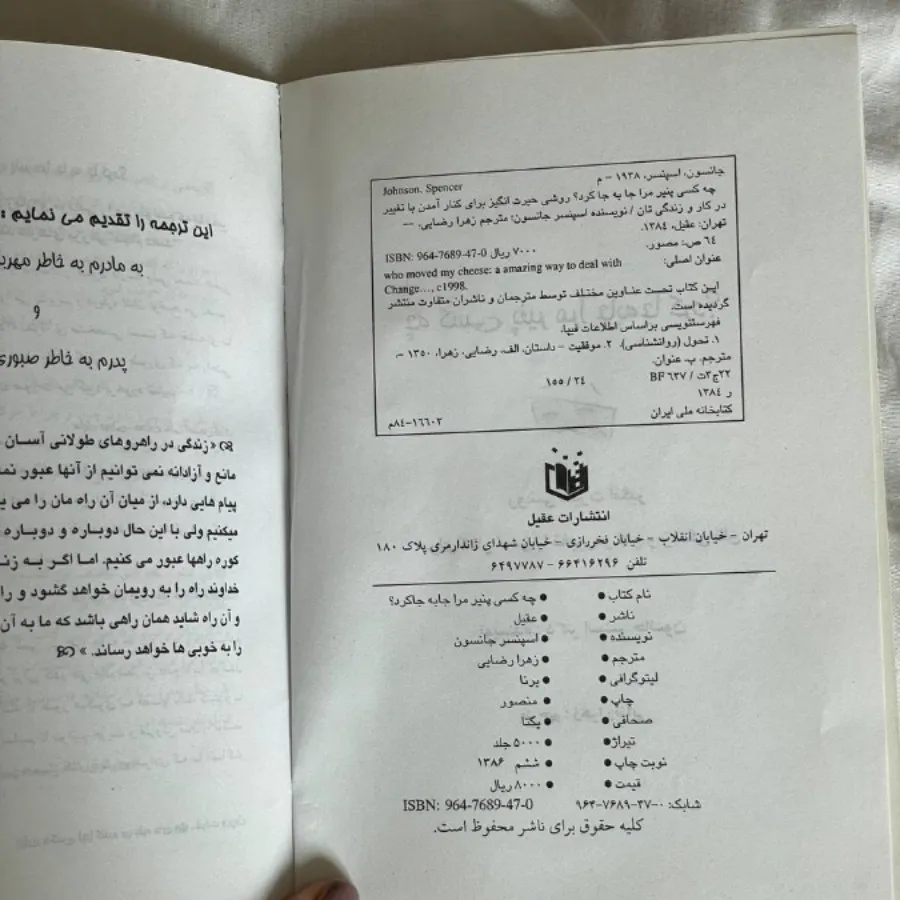 جانسون، اسپنسر، ۱۹۳۸ - م
Johnson, Spencer
چه کسی پنیر مرا جا به جا کرد؟ روشی حیرت انگیز برای کنار آمدن با تغییر
در کار و زندگی تان / نویسنده اسپنسر جانسون؛ مترجم زهرا رضایی. --
تهران: عقیل، ۱۳۸۴.
۶۴ ص: مصور.
ISBN: 964-7689-47-0 ۷۰۰۰ ریال
عنوان اصلی:
who moved my cheese: a amazing way to deal with
Change..., c1998.
این کتاب تحت عناوین مختلف توسط مترجمان و ناشران متفاوت منتشر
گردیده است.
فهرستنویسی براساس اطلاعات فیپا.
۱. تحول (روانشناسی). ۲. موفقیت - داستان. الف. رضایی، زهرا، ۱۳۵۰ -،
مترجم. ب. عنوان.
BF ۶۳۷ / ت۳ج۲۲
۱۵۵/۲۴
ر ۱۳۸۴
کتابخانه ملی ایران
م۸۴-۱۶۶۰۳
انتشارات عقیل
تهران - خیابان انقلاب - خیابان فخررازی - خیابان شهدای ژاندارمری پلاک ۱۸۰
تلفن ۶۶۴۱۶۲۹۶ - ۶۴۹۷۷۸۷
نام کتاب ● ● چه کسی پنیر مرا جابه جاکرد؟
ناشر ● ● عقیل
نویسنده ● ● اسپنسر جانسون
مترجم ● ● زهرا رضایی
لیتوگرافی ● ● برنا
چاپ ● ● منصور
صحافی ● ● یکتا
تیراژ ● ● ۵۰۰۰ جلد
نوبت چاپ ● ● ششم ۱۳۸۶
قیمت ● ● ۸۰۰۰ ریال
شابک: ۰-۴۷-۷۶۸۹-۹۶۴ ISBN: 964-7689-47-0
کلیه حقوق برای ناشر محفوظ است.
این ترجمه را تقدیم می نمایم :
به مادرم به خاطر
و
پدرم به خاطر
« زندگی در راهروهای طولانی آسان
مانع و آزادانه نمی توانیم از آنها عبور
پیام هایی دارد، از میان آن راه مان را می
میکنیم ولی با این حال دوباره و دوباره
کوره راهها عبور می کنیم. اما اگر به
خداوند راه را به رویمان خواهد گشود و
و آن راه شاید همان راهی باشد که ما به آن
را به خوبی ها خواهد رساند. »